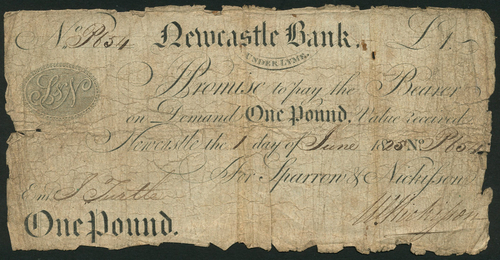 No P654 Newcastle Bank. £1-
UNDER LYME.
S&N
I Promise to pay the Bearer
on Demand One Pound. Value received
Newcastle the 1 day of June 1825 No P654
For Sparrow & Nickisson
Entd J Turtle
W Nickisson
One Pound.